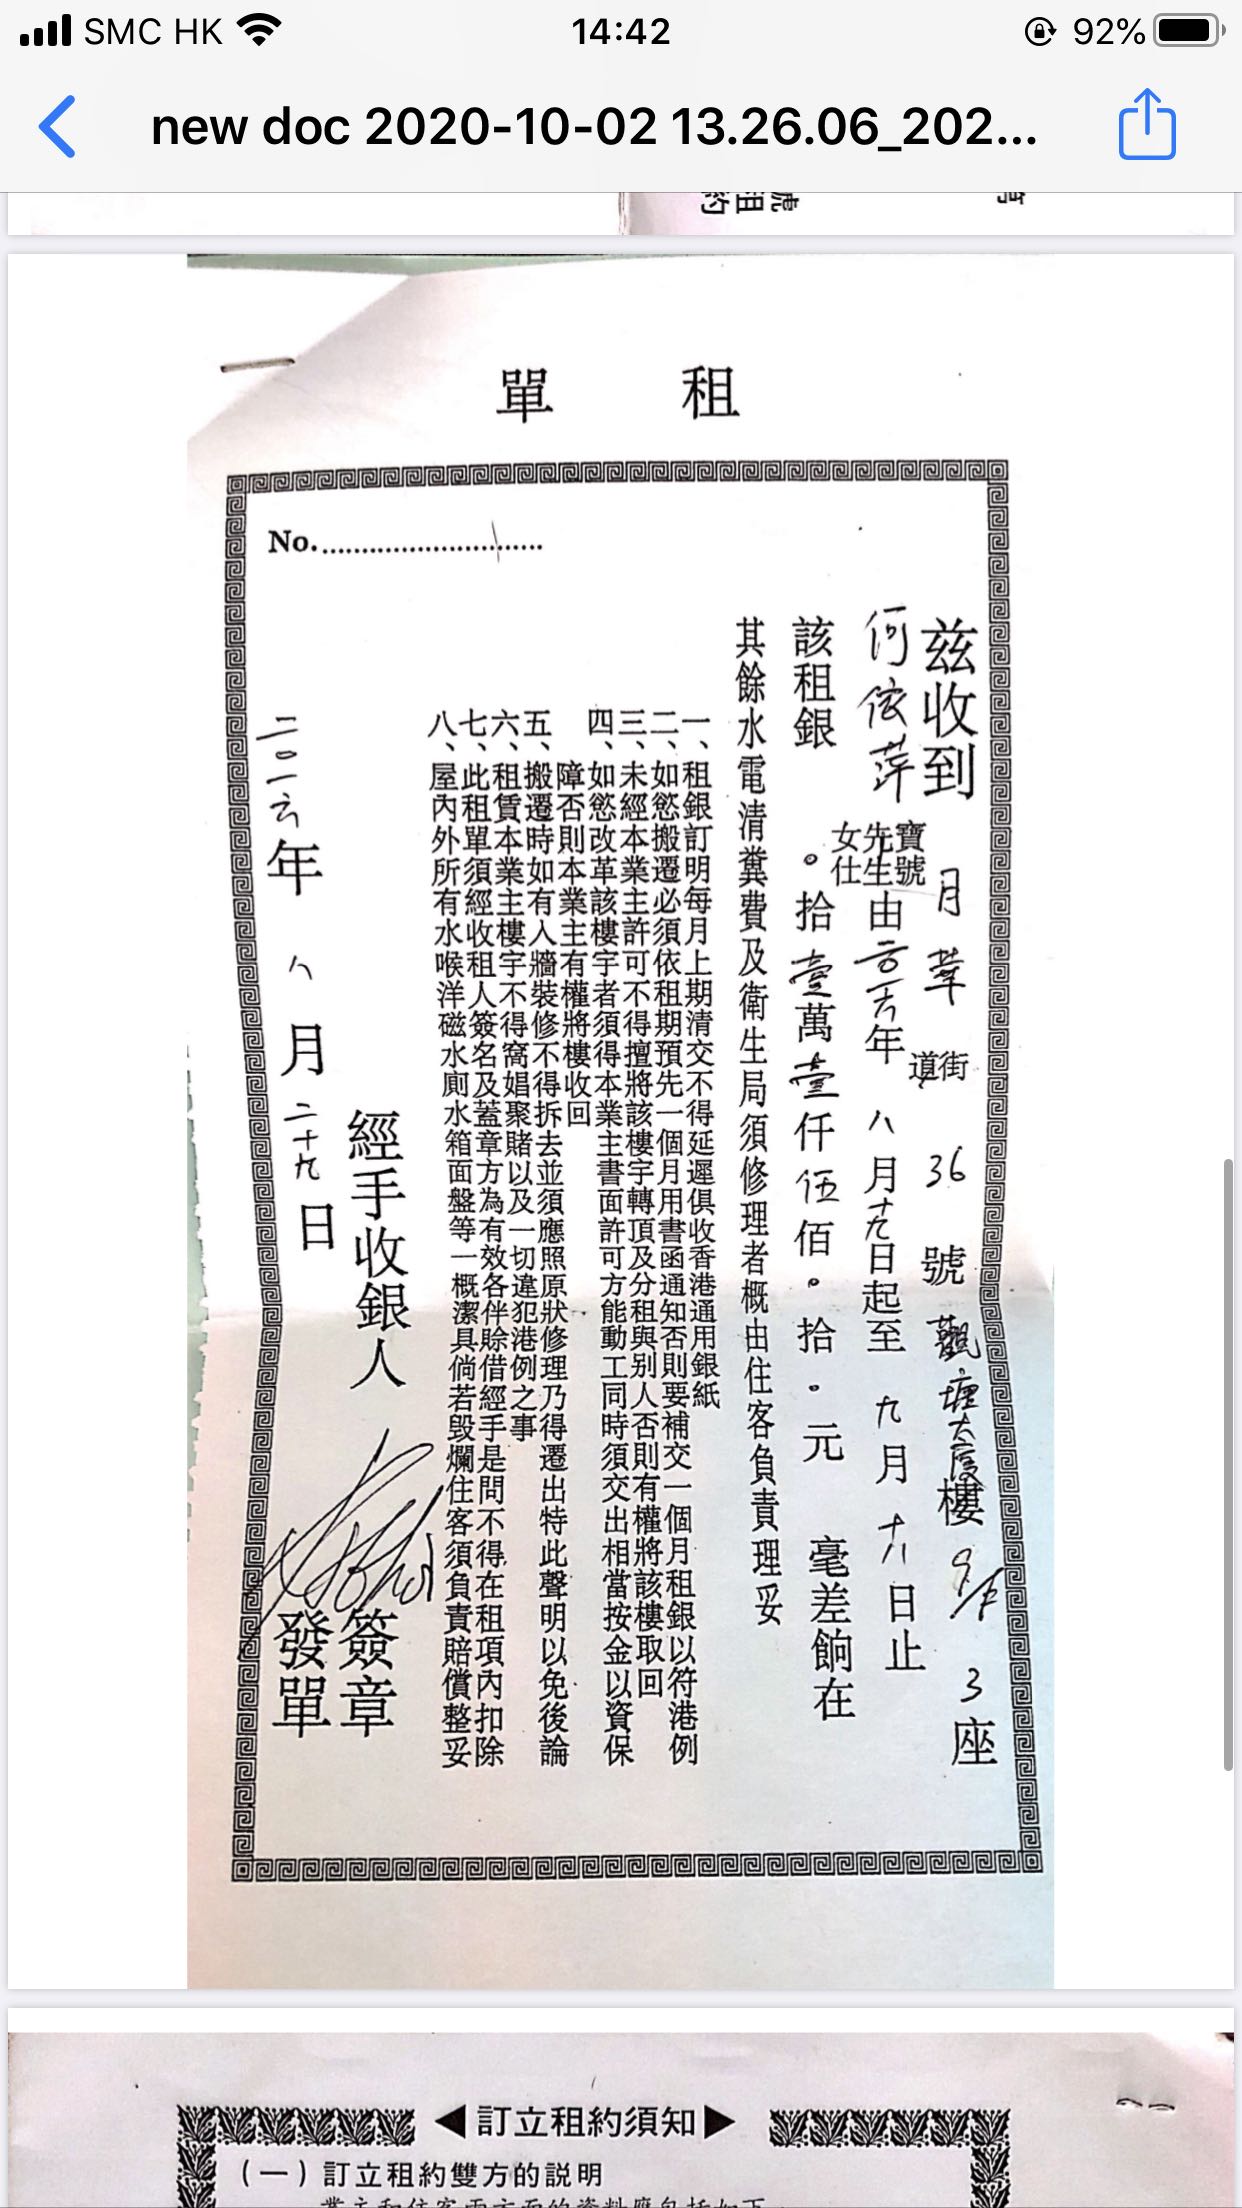 SMC HK
14:42
92%
new doc 2020-10-02 13.26.06_202...
號
租
約
寫
租單
No.
茲收到 月華 街道 36 號 觀塘大廈樓 9/F 3 座
何依萍 寶號 先生 女仕 由二〇一六年 八月十九日起至 九月十八日止
該租銀 。拾壹萬壹仟伍佰。拾.元 毫差餉在
其餘水電清糞費及衛生局須修理者概由住客負責理妥
一、租銀訂明每月上期清交不得延遲俱收香港通用銀紙
二、如慾搬遷必須依租期預先一個月用書函通知否則要補交一個月租銀以符港例
三、未經本業主許可不得擅將該樓宇轉頂及分租與別人否則有權將該樓取回
四、如慾改革該樓宇者須得本業主書面許可方能動工同時須交出相當按金以資保
障否則本業主有權將樓收回
五、搬遷時如有入牆裝修不得拆去並須應照原狀修理乃得遷出特此聲明以免後論
六、租賃本業主樓宇不得窩娼聚賭以及一切違犯港例之事
七、此租單須經收租人簽名及蓋章方為有效各伴賒借經手是問不得在租項內扣除
八、屋內外所有水喉洋磁水廁水箱面盤等一概潔具倘若毀爛住客須負責賠償整妥
經手收銀人 簽章
二〇一六年 八月二十九日 發單
◀訂立租約須知▶
（一）訂立租約雙方的説明
業主和住客雙方面的資料應包括如下